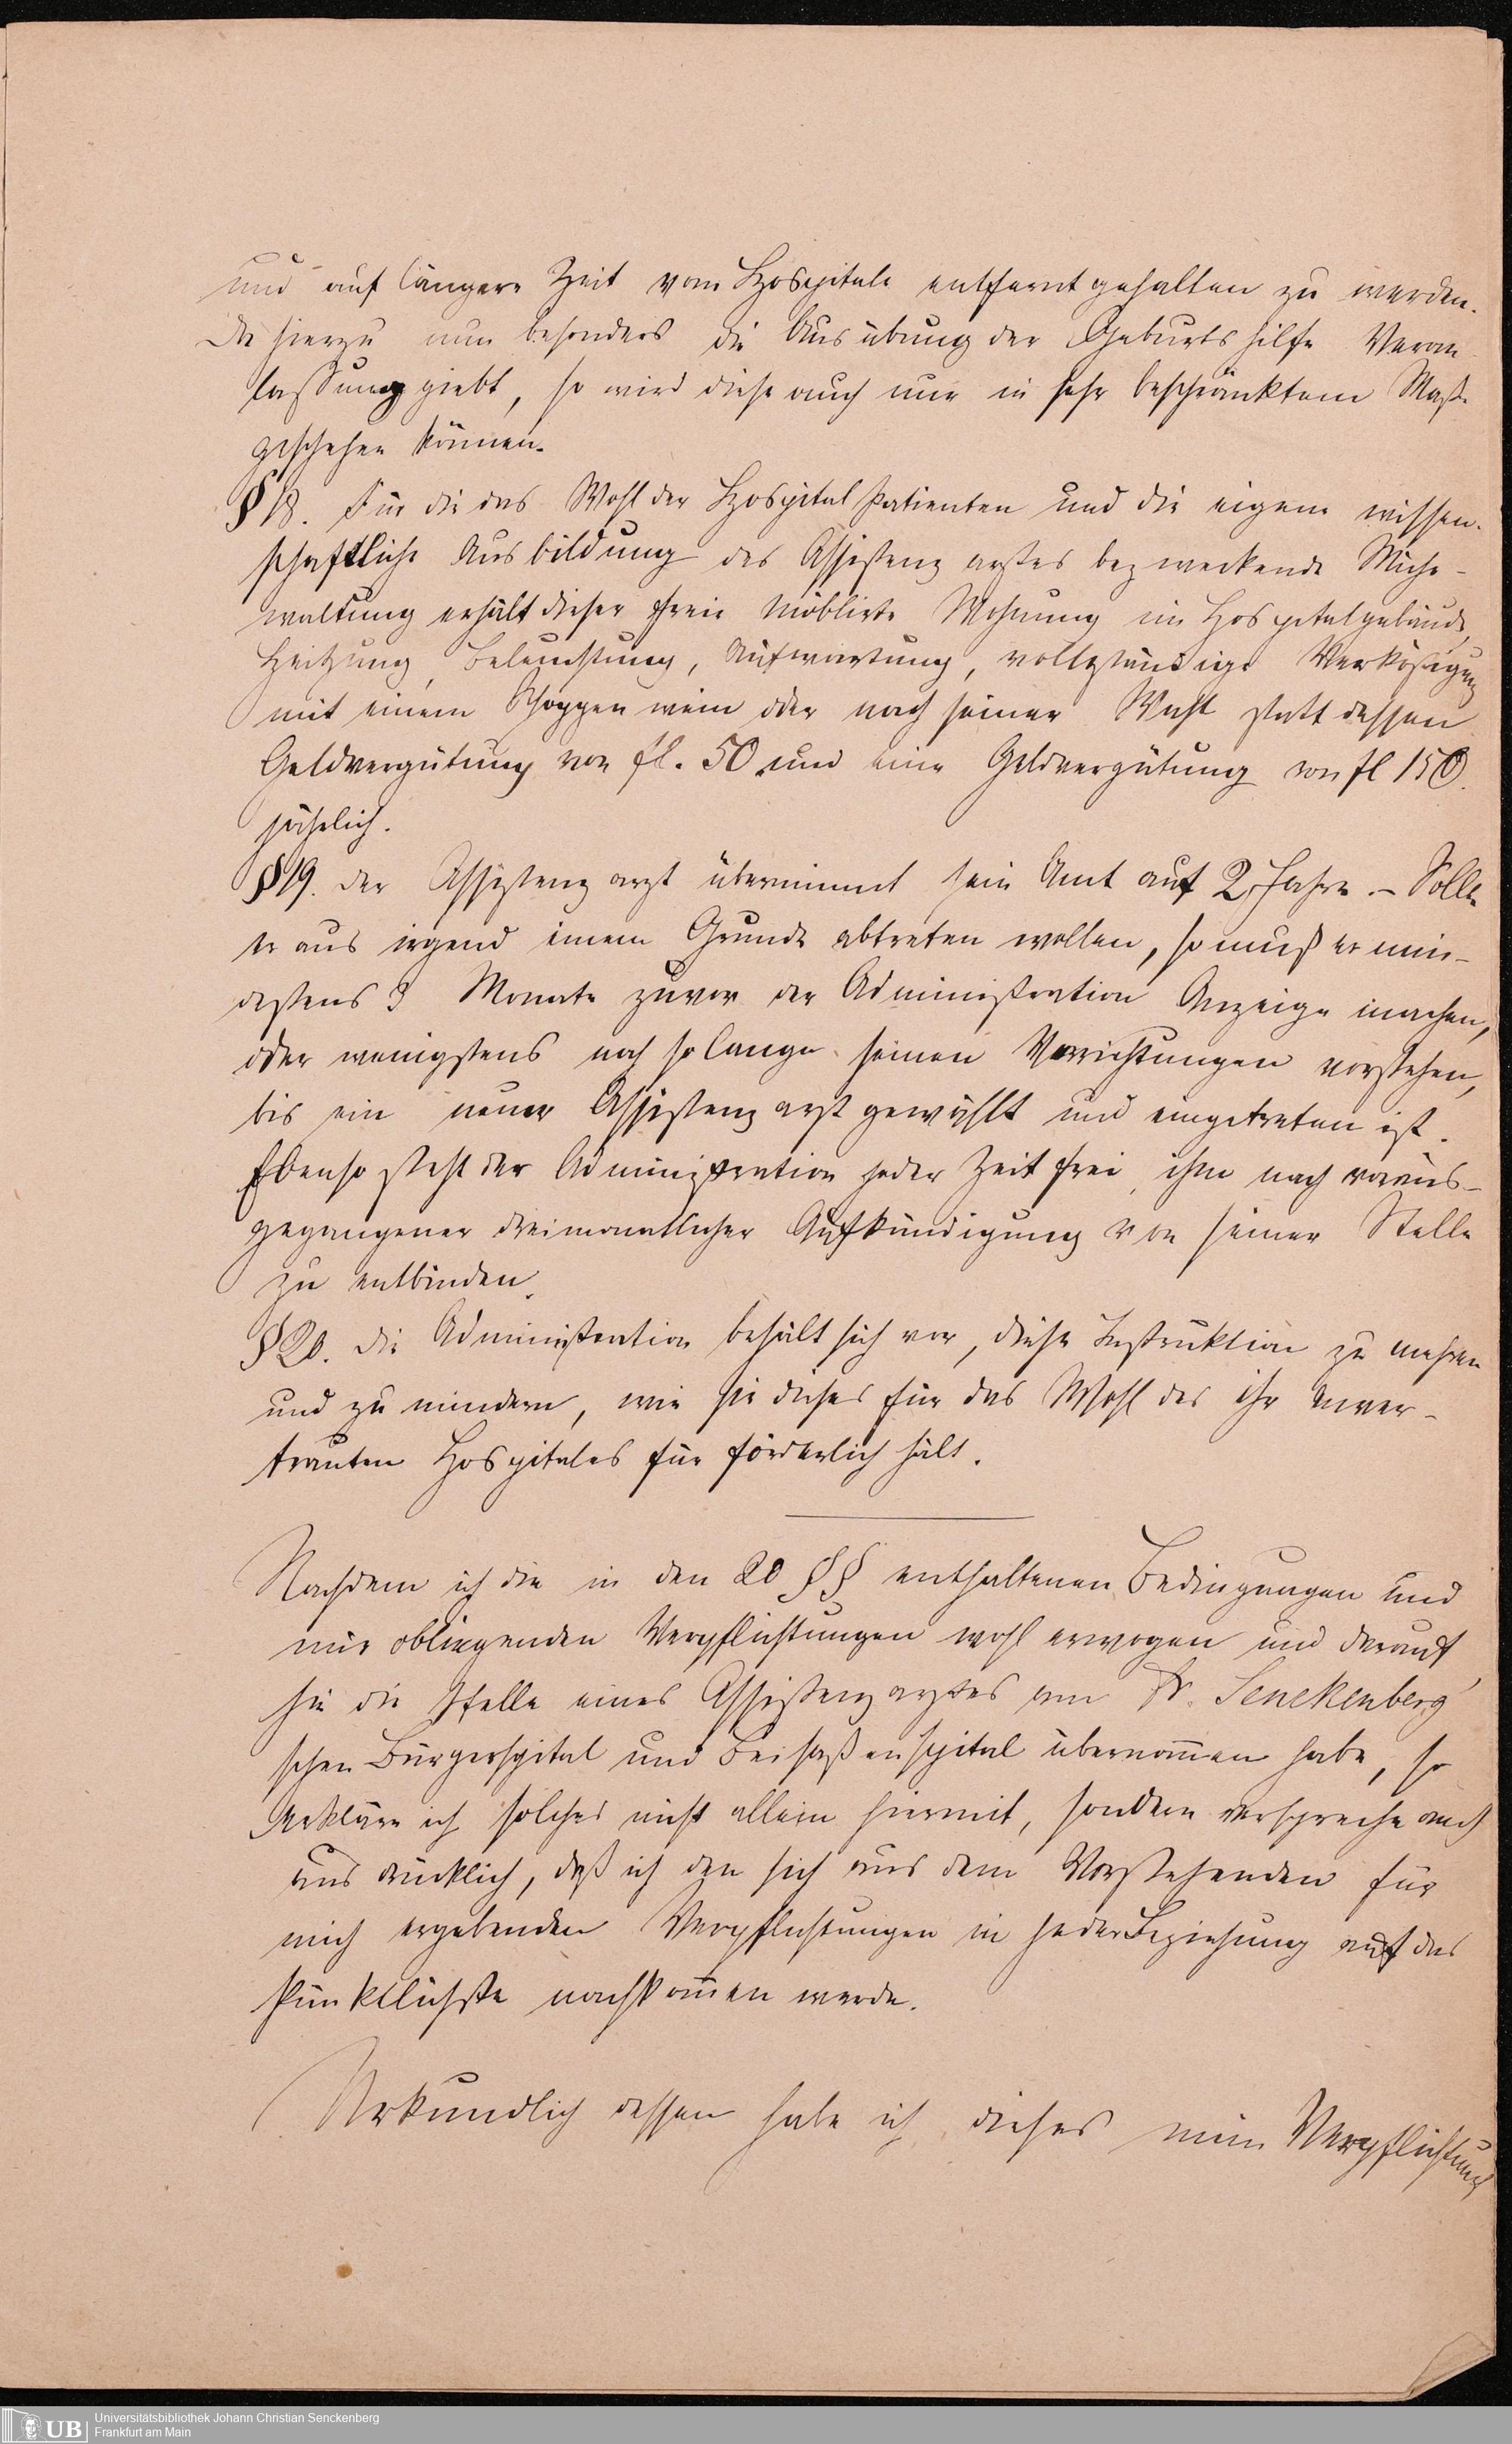 und auf längere Zeit vom Hospitale entfernt gehalten zu werden.
Da hierzu nun besonders die Ausübung der Geburtshilfe Veran
lassung giebt, so wird diese auch nur in sehr beschränktem Maße
geschehen können.
§ 18. Für die das Wohl der Hospital Patienten und die eigene wissen-
schaftliche Ausbildung des Assistenzarztes bezweckende Mühe-
waltung erhält dieser freie möblirte Wohnung im Hospitalgebäude,
Heitzung, Beleuchtung, Aufwartung, vollständige Verköstigung
mit einem Schoppen wein oder nach seiner Wahl statt dessen
Geldvergütung von fl. 50 und eine Geldvergütung von fl 150.
jährlich.
§ 19. Der Assistenzarzt übernimmt sein Amt auf 2 Jahre. – Sollte
er aus irgend einem Grunde abtreten wollen, so muß er min-
destens 3 Monate zuvor der Administration Anzeige machen,
oder wenigstens noch so lange seinen Verrichtungen vorstehen,
bis ein neuer Assistenzarzt gewählt und eingetreten ist.
Ebenso steht der Administration jeder Zeit frei, ihn nach voraus-
gegangener dreimonatlicher Aufkündigung von seiner Stelle
zu entbinden.
§ 20. Die Administration behält sich vor, diese Instruktion zu mehren
und zu mindern, wie sie dieses für das Wohl des ihr anver-
trauten Hospitales für förderlich hält.
Nachdem ich die in den 20 §§ enthaltenen Bedingungen und
mir obliegenden Verpflichtungen wohl erwogen und darauf
hin die Stelle eines Assistenzarztes am Dr. Senckenberg'
schen Bürgerspital und Beisaßenspital übernom̄en habe, so
erkläre ich solches nicht allein hiermit, sondern verspreche auch
ausdrücklich, daß ich den sich aus dem Vorstehenden für
mich ergebenden Verpflichtungen in jeder Beziehung auf das
Pünktlichste nachkom̄en werde.
Urkundlich dessen habe ich dieses mein Verpflichtungs
UB
Universitätsbibliothek Johann Christian Senckenberg
Frankfurt am Main